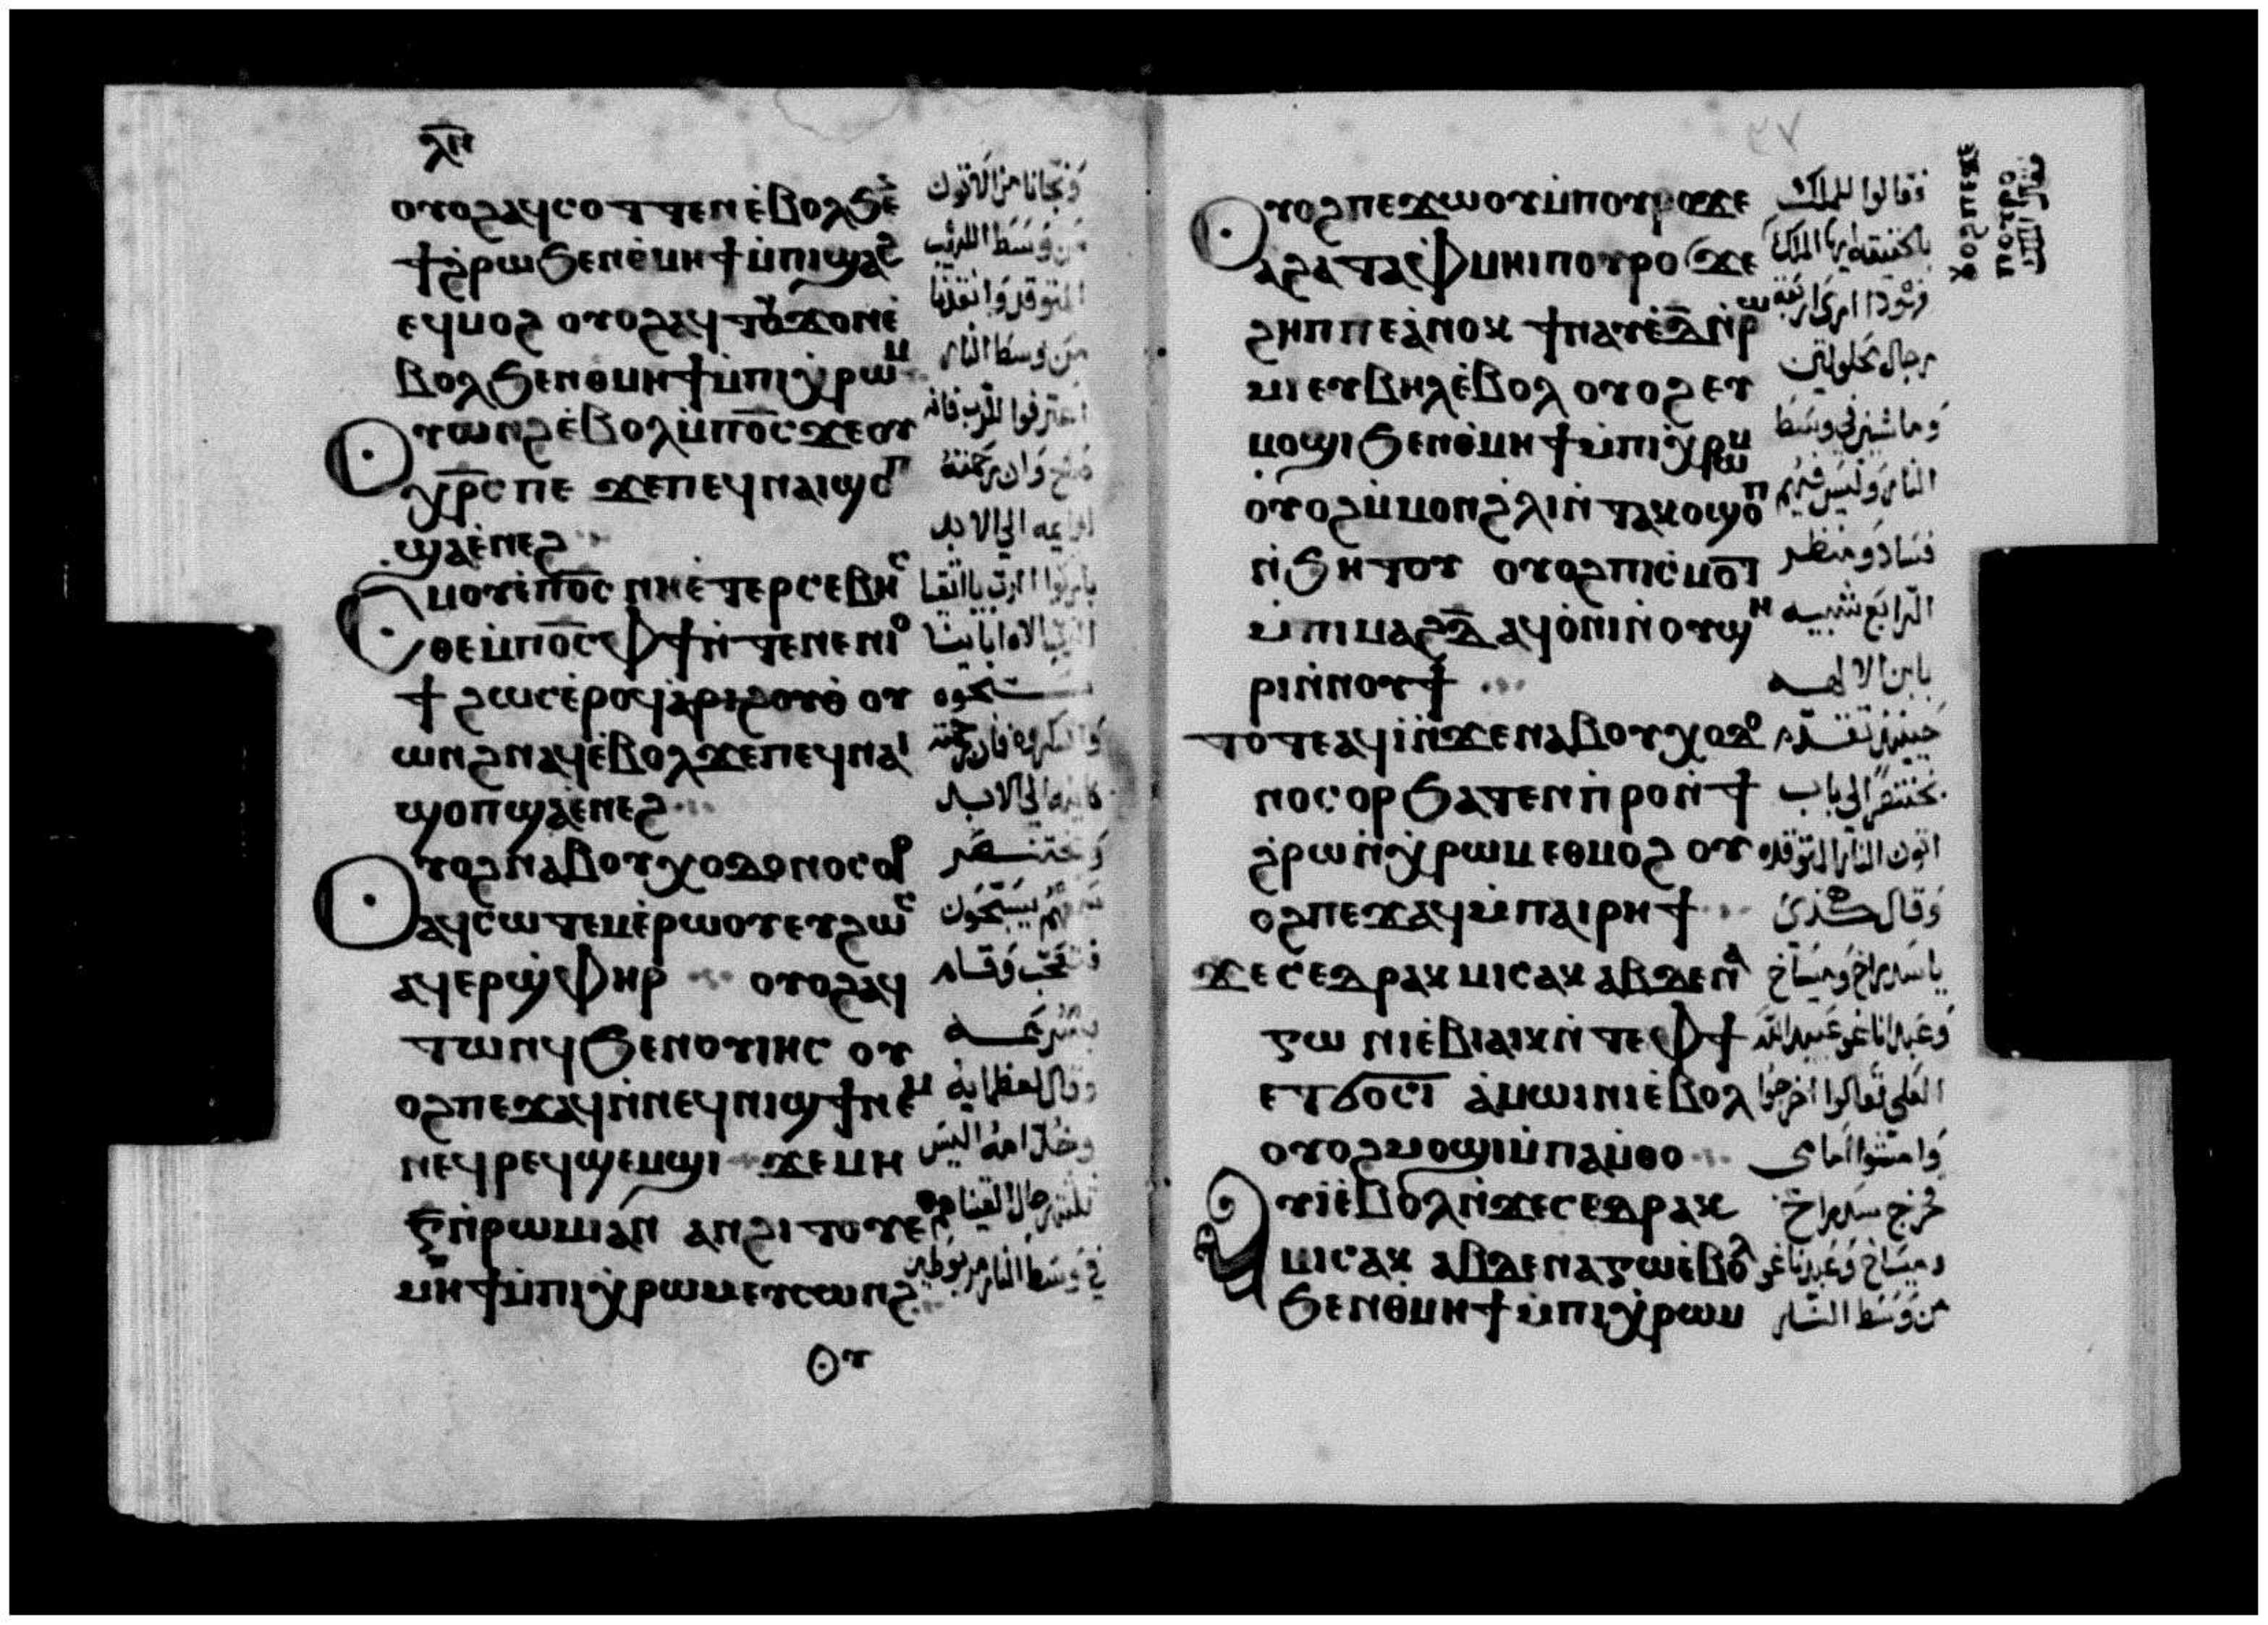 ⲗⲏ
ⲟⲩⲟϩ ⲁϥⲥⲟⲧⲧⲉⲛ ⲉ̀ⲃⲟⲗϧⲉ̄
ϯϩⲣⲱ ϧⲉⲛⲑ̀ⲙⲏϯ ⲙ̀ⲡⲓϣⲁϩ
ⲉϥⲙⲟϩ ⲟⲩⲟϩ ⲁϥⲧⲟⲩϫⲟⲛ ⲉ̀
ⲃⲟⲗ ϧⲉⲛⲑⲙⲏϯ ⲙ̀ⲡⲓⲭ̀ⲣⲱⲙ
Ⲟⲩⲱⲛϩ ⲉ̀ⲃⲟⲗ ⲙ̀ⲡⲟ̅ⲥ̅ ϫⲉⲟⲩ
ⲭⲣ̅ⲥ̅ ⲡⲉ ϫⲉ ⲡⲉϥⲛⲁⲓ ϣⲟⲡ
ϣⲁⲉ̀ⲛⲉϩ
Ⲥⲙⲟⲩ ⲉ̀ⲡⲟ̅ⲥ̅ ⲛⲏⲉ̀ⲧⲉⲣⲥⲉⲃⲏⲥ
ⲑⲉ ⲙ̀ⲡⲟ̅ⲥ̅ ⲫϯ ⲛ̀ⲧⲉⲛⲉⲛⲓⲟ
ϯ ϩⲱⲥ ⲉ̀ⲣⲟϥ ⲁ̀ⲣⲓϩⲟⲩⲟ̀ ⲟⲩ
ⲱⲛϩ ⲛⲁϥ ⲉ̀ⲃⲟⲗ ϫⲉ ⲡⲉϥⲛⲁⲓ
ϣⲟⲡ ϣⲁⲉ̀ⲛⲉϩ
Ⲟⲩⲟϩ ⲛⲁⲃⲟⲩⲭⲟⲇⲟⲛⲟⲥⲟⲣ
ⲁϥⲥⲱⲧⲉⲙ ⲉ̀ⲣⲱⲟⲩ ⲉⲩϩⲱⲥ
ⲁϥⲉⲣϣ̀ⲫⲏⲣ ⲟⲩⲟϩ ⲁϥ
ⲧⲱⲛϥ ϧⲉⲛⲟⲩⲓⲏⲥ ⲟⲩ
ⲟϩ ⲡⲉϫⲁϥ ⲛ̀ⲛⲉϥⲛⲓϣϯ ⲛⲉⲙ
ⲛⲉϥⲣⲉϥϣⲉⲙϣⲓ ϫⲉ ⲙⲏ
ⲅ̅ ⲛ̀ⲣⲱⲙⲓ ⲁⲛ ⲁⲛϩⲓⲧⲟⲩ ⲉ̀
ⲙⲏϯ ⲙ̀ⲡⲓⲭ̀ⲣⲱⲙ ⲉⲩⲥⲱⲛϩ
ⲟⲩ
ونجانا من الاتون
من وسط اللهيب
المتوقد وانقذنا
من وسط النار
اعترفوا للرب فانه
صالح وان رحمته
دايمه الي الابد
باركوا الرب يا اتقيا
الرب الاه اباينا
سبحوه
واشكروه فان رحمته
كاينه الي الابد
وبختنصر
سمعهم يسبحون
فتعجب وقام
بسرعه
وقال لعظمايه
وخدامه اليس
ثلثه رجال القينا
في وسط النار مربوطين
٣٧
Ⲟⲩⲟϩ ⲡⲉϫⲱⲟⲩ ⲙ̀ⲡⲟⲩⲣⲟ ϫⲉ
ⲁϩⲁ ⲧⲁⲫⲙⲏⲓ ⲡⲟⲩⲣⲟ ϫⲉ
ϩⲏⲡⲡⲉ ⲁ̀ⲛⲟⲕ ϯⲛⲁⲩ ⲉ̀ⲇ̅ ⲛ̀ⲣⲱ
ⲙⲓ ⲉⲩⲃⲏⲗ ⲉ̀ⲃⲟⲗ ⲟⲩⲟϩ ⲉⲩ
ⲙⲟϣⲓ ϧⲉⲛⲑ̀ⲙⲏϯ ⲙ̀ⲡⲓⲭ̀ⲣⲱⲙ
ⲟⲩⲟϩ ⲙ̀ⲙⲟⲛ ϩ̀ⲗⲓ ⲛ̀ⲧⲁⲕⲟ ϣⲟⲡ
ⲛ̀ϧⲏⲧⲟⲩ ⲟⲩⲟϩ ⲡⲓⲥ̀ⲙⲟⲧ
ⲙ̀ⲡⲓⲙⲁϩⲇ̅ ⲁϥⲟ̀ⲛⲓ ⲛ̀ⲟⲩϣⲏ
ⲣⲓ ⲛ̀ⲛⲟⲩϯ
ⲧⲟⲧⲉ ⲁϥⲓ̀ ⲛ̀ϫⲉ ⲛⲁⲃⲟⲩⲭⲟⲇⲟ
ⲛⲟⲥⲟⲣ ϧⲁⲧⲉⲛ ⲡ̀ⲣⲟ ⲛ̀ϯ
ϩ̀ⲣⲱ ⲛ̀ⲭ̀ⲣⲱⲙ ⲉⲑⲙⲟϩ ⲟⲩ
ⲟϩ ⲡⲉϫⲁϥ ⲙ̀ⲡⲁⲓⲣⲏϯ
ϫⲉ ⲥⲉⲇⲣⲁⲕ ⲙⲓⲥⲁⲕ ⲁⲃⲇⲉⲛⲁ
ⲅⲱ ⲛⲓⲉ̀ⲃⲓⲁⲓⲕ ⲛ̀ⲧⲉ ⲫϯ
ⲉⲧϭⲟⲥⲓ ⲁ̀ⲙⲱⲓⲛⲓ ⲉ̀ⲃⲟⲗ
ⲟⲩⲟϩ ⲙⲟϣⲓ ⲙ̀ⲡⲁⲙ̀ⲑⲟ
Ⲁⲩⲓ̀ ⲉ̀ⲃⲟⲗ ⲛ̀ϫⲉ ⲥⲉⲇⲣⲁⲕ
ⲙⲓⲥⲁⲕ ⲁⲃⲇⲉⲛⲁⲅⲱ ⲉ̀ⲃⲟⲗ
ϧⲉⲛⲑ̀ⲙⲏϯ ⲙ̀ⲡⲓⲭ̀ⲣⲱⲙ
فقالوا للملك
بالحقيقه ايها الملك
هوذا اري اربعه
رجال محلولين
وماشين في وسط
النار وليس فيهم
فساد ومنظر
الرابع شبيه
بابن الالهه
حينيذ تقدم
بختنصر الي باب
اتون النار المتوقده
وقال هكذي
يا سدراخ وميساخ
وعبداناغو عبيد الله
العلي تعالوا اخرجوا
وامشوا امامي
فخرج سدراخ
وميساخ وعبدناغو
من وسط النار
ⲟⲩⲟϩ ⲡⲉϫⲉ
ⲡⲟⲩⲣⲟ